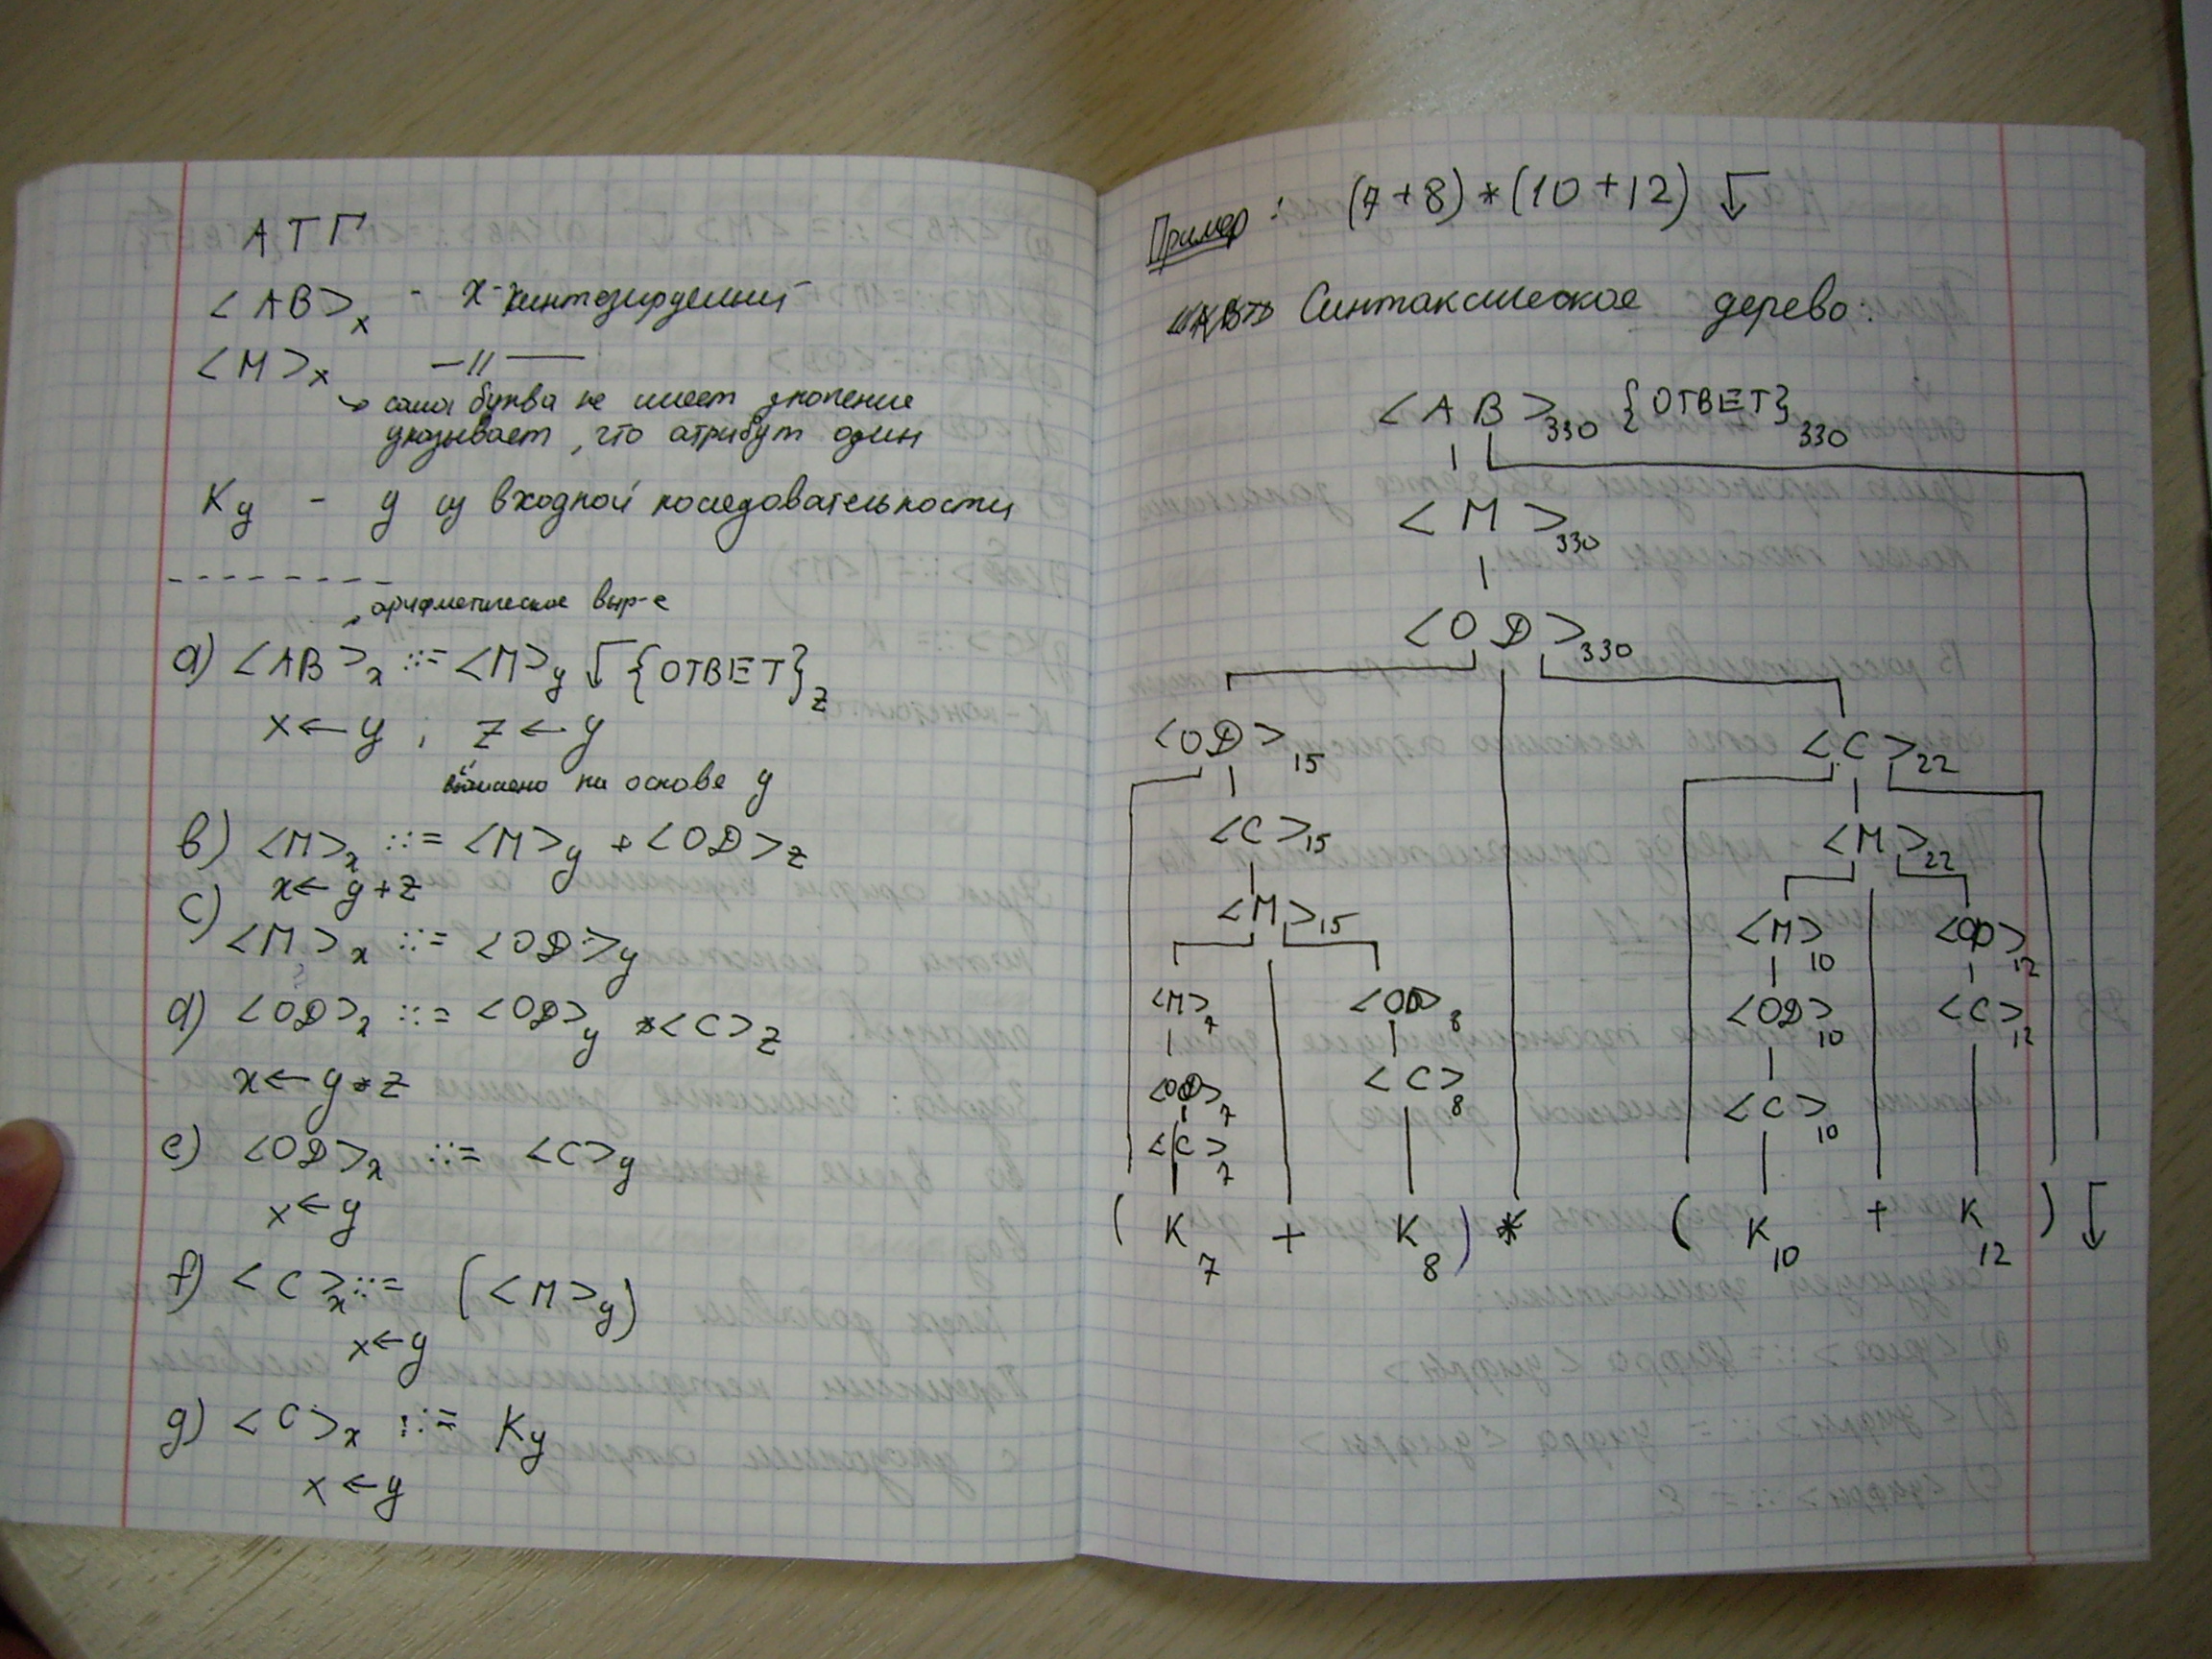 АТГ
<АВ>x - x-синтезируемый
<М>x —//—
↳ сама буква не имеет значение
указывает, что атрибут один
Kу - y из входной последовательности
арифметическое выр-е
a) <АВ>x ::= <М>y ↓ {ОТВЕТ}z
x←y ; z←y
на основе y
b) <М>x ::= <М>y + <ОД>z
x←y+z
c) <М>x ::= <ОД>y
d) <ОД>x ::= <ОД>y *<С>z
x←y*z
e) <ОД>x ::= <С>y
x←y
f) <С>x ::= (<М>y)
x←y
g) <С>x ::= Kу
x←y
Пример: (7+8)*(10+12) ↓
Синтаксическое дерево:
<АВ>330 {ОТВЕТ}330
<М>330
<ОД>330
<ОД>15 <С>22
<С>15 <М>22
<М>15 <М>10 <ОД>12
<М>7 <ОД>8 <ОД>10 <С>12
<ОД>7 <С>8 <С>10
<С>7
( K7 + K8 ) * ( K10 + K12 ) ↓